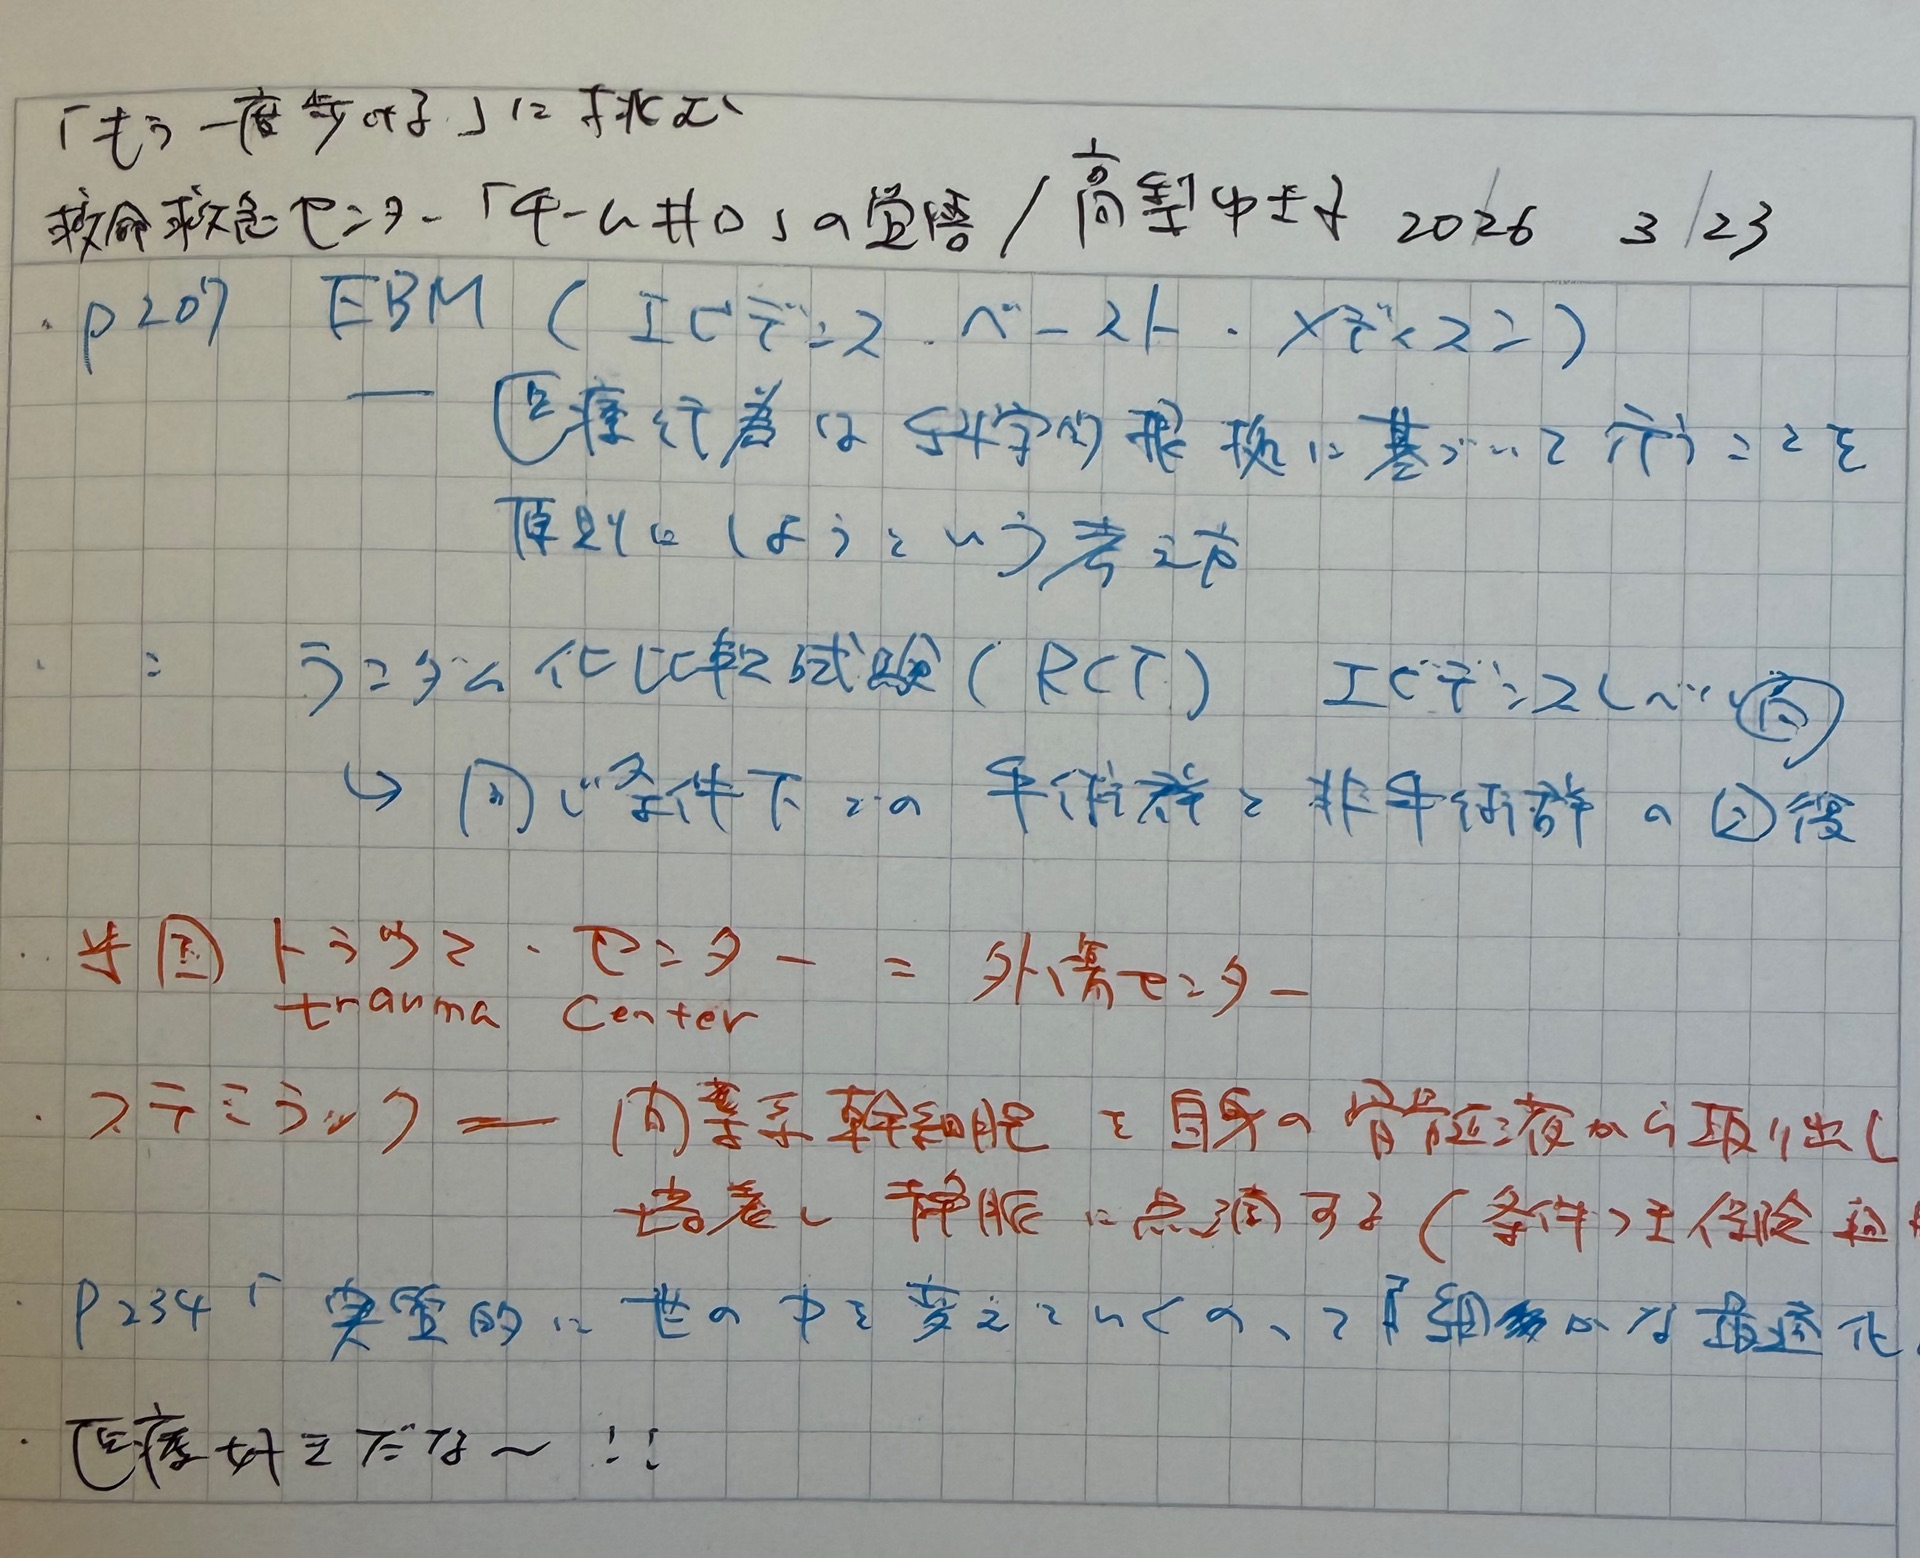 「もう一度歩ける」に挑む
救命救急センター「チーム井口」の覚悟/高梨ゆき子 2026 3/23
・p207 EBM(エビデンス・ベースト・メディスン)
― 医療行為は科学的根拠に基づいて行うことを
原則にしようという考え方
・ = ランダム化比較試験(RCT) エビデンスレベル高
↳ 同じ条件下での 手術群と非手術群の回復
・米国トラウマ・センター = 外傷センター
trauma center
・ステミラック ― 間葉系幹細胞を自身の骨髄液から取り出し
培養し 静脈に点滴する(条件つき保険適用
・P234「実質的に世の中を変えていくのって『細かな最適化
・医療好きだな〜!!